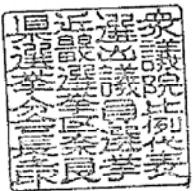 衆議院比例代表
選出議員選挙
近畿選挙区奈良
県選挙分会長之印